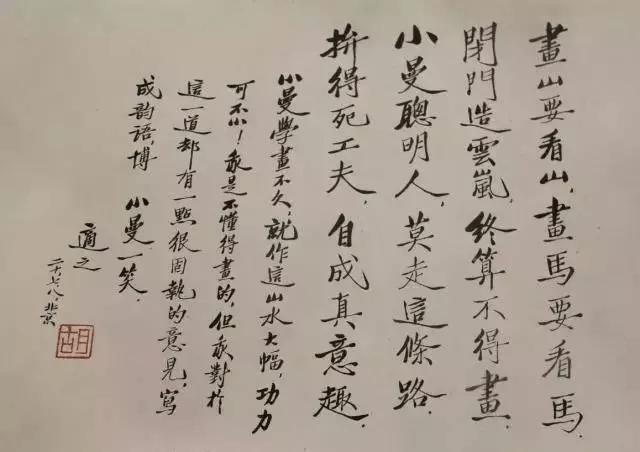 畫山要看山，畫馬要看馬，
閉門造雲嵐，終算不得畫．
小曼聰明人，莫走這條路．
拚得死工夫，自成真意趣．
小曼學畫不久，就作這山水大幅，功力
可不小！我是不懂得畫的，但我對於
這一道却有一點很固執的意見，寫
成韵語，博　小曼一笑．
適之
二十，七，八 北京
胡